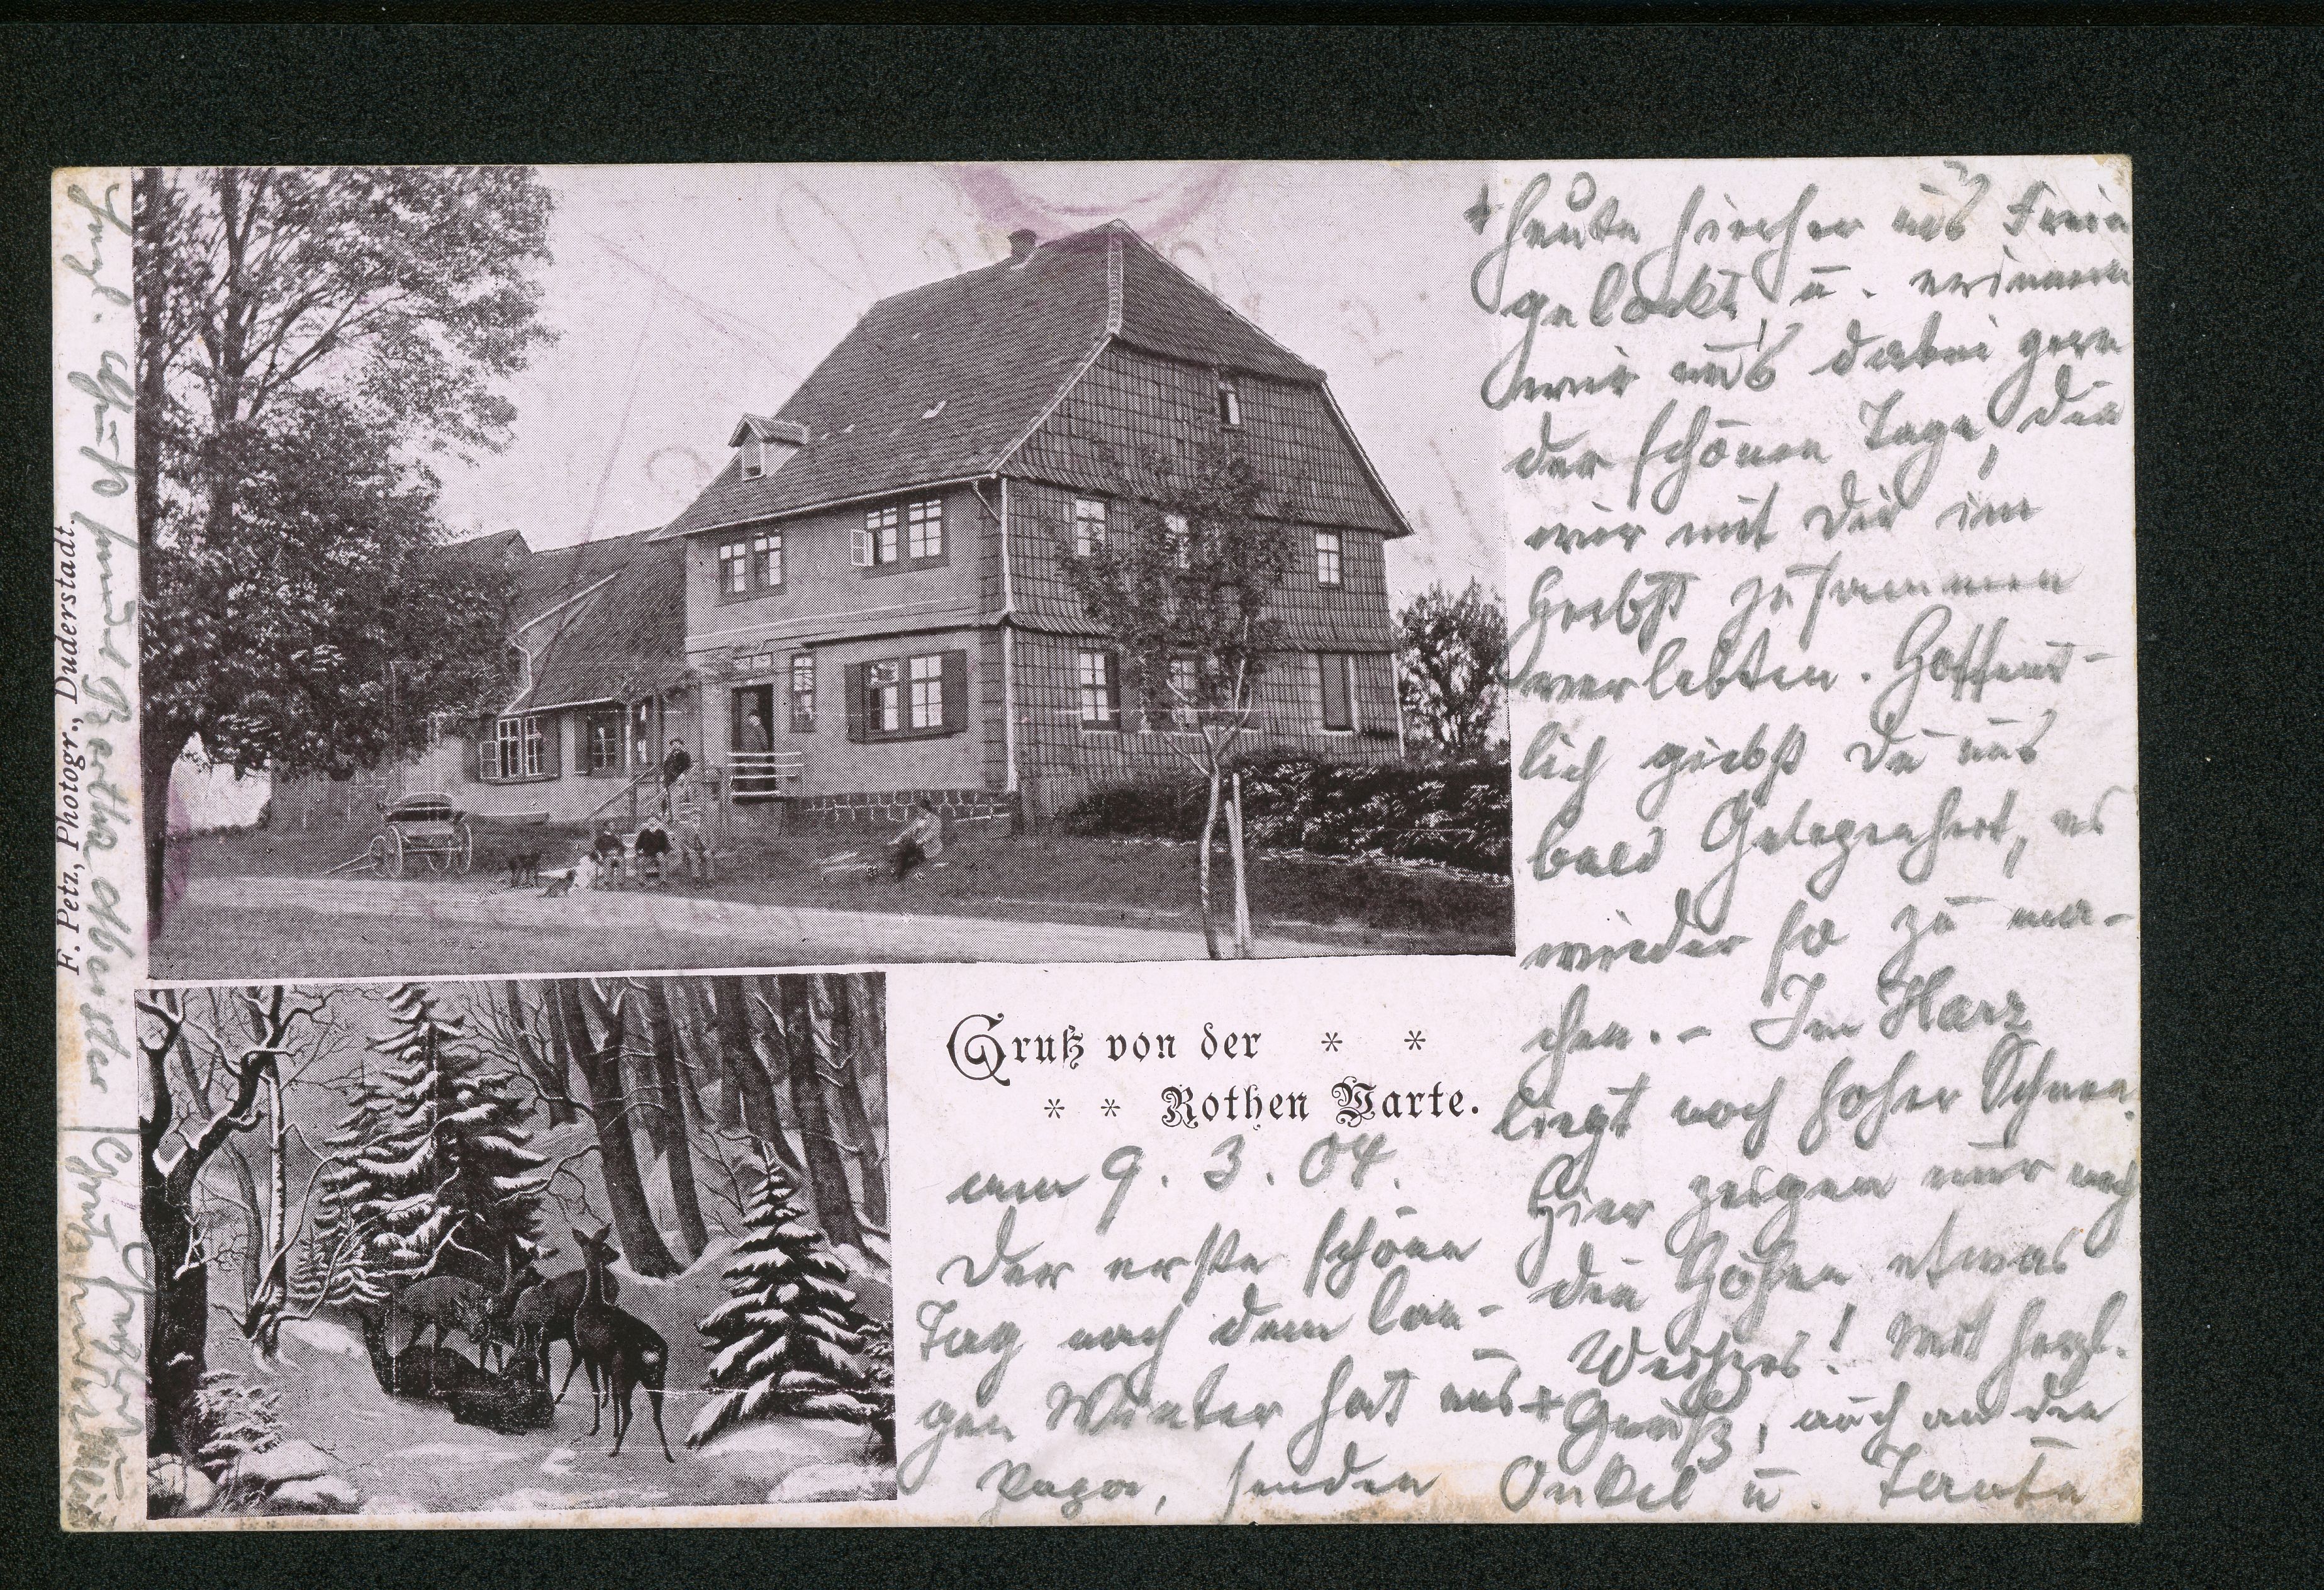 Gruß von der
Rothen Warte.
am 9. 3. 04.
Der erste schöne
Tag nach dem lan-
gen Winter hat uns +
+ heute hierher ins Freie
gelockt, u. erinnern
wir uns dabei gern
der schönen Tage, die
wir mit Dir im
Herbst zusammen
verlebten. Hoffent-
lich giebst Du uns
bald Gelegenheit, es
wieder so zu ma-
chen. - Im Harz
liegt noch hoher Schnee.
Hier zeigen nur noch
die Höhen etwas
Weißes! Mit herzl.
Gruß, auch an den
Papa, senden Onkel u. Tante
Bertha
F. Petz, Photogr., Duderstadt.